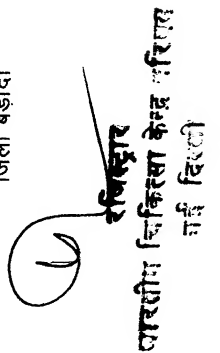 जिला बड़ोदा
रजिस्ट्रार
भारतीय चिकित्सा केन्द्रीय परिषद
नई दिल्ली